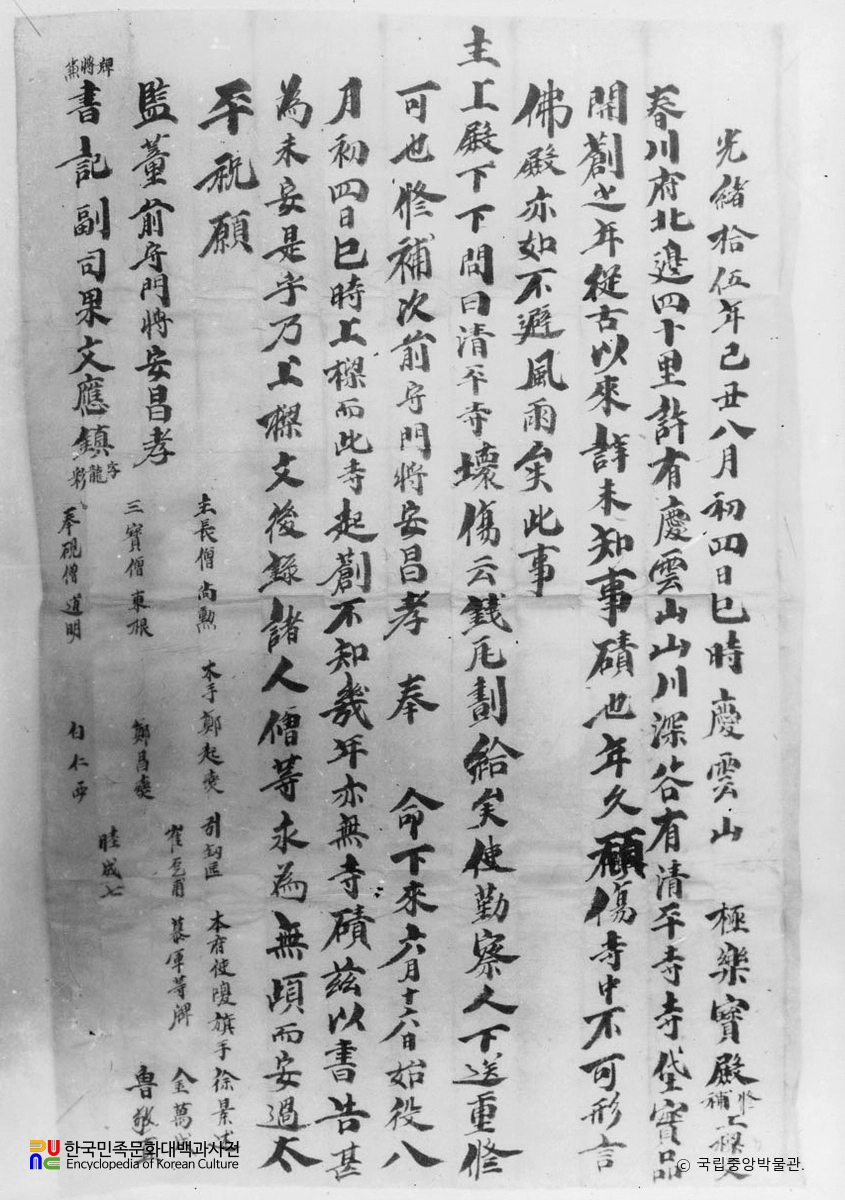 光緖拾伍年己丑八月初四日巳時慶雲山 極樂寶殿修補上樑文
春川府北邊四十里許有慶雲山山川深谷有淸平寺寺垈寶品
開刱之年從古以來詳未知事磧也年久頹傷寺中不可形言
佛殿亦如不避風雨矣此事
主上殿下下問曰淸平寺壞傷云錢兀劃給矣使勤察人下送重修
可也修補次前守門將安昌孝 奉 命下來六月十六日始役八
月初四日巳時上樑而此寺起刱不知幾年亦無寺磧玆以書告甚
爲未安是乎乃上樑文後錄諸人僧等永爲無頉而安過太
平祝願
監董前守門將安昌孝
書記副司果文應鎭
兼將牌
字龍彩
主長僧 尙勳
三寶僧 東根
奉硯僧 道明
木手 鄭起奭
鄭昌奭
白仁
睦成七
本府使
旗手 徐景
募軍等牌 金萬
魯敬
한국민족문화대백과사전
Encyclopedia of Korean Culture
© 국립중앙박물관.